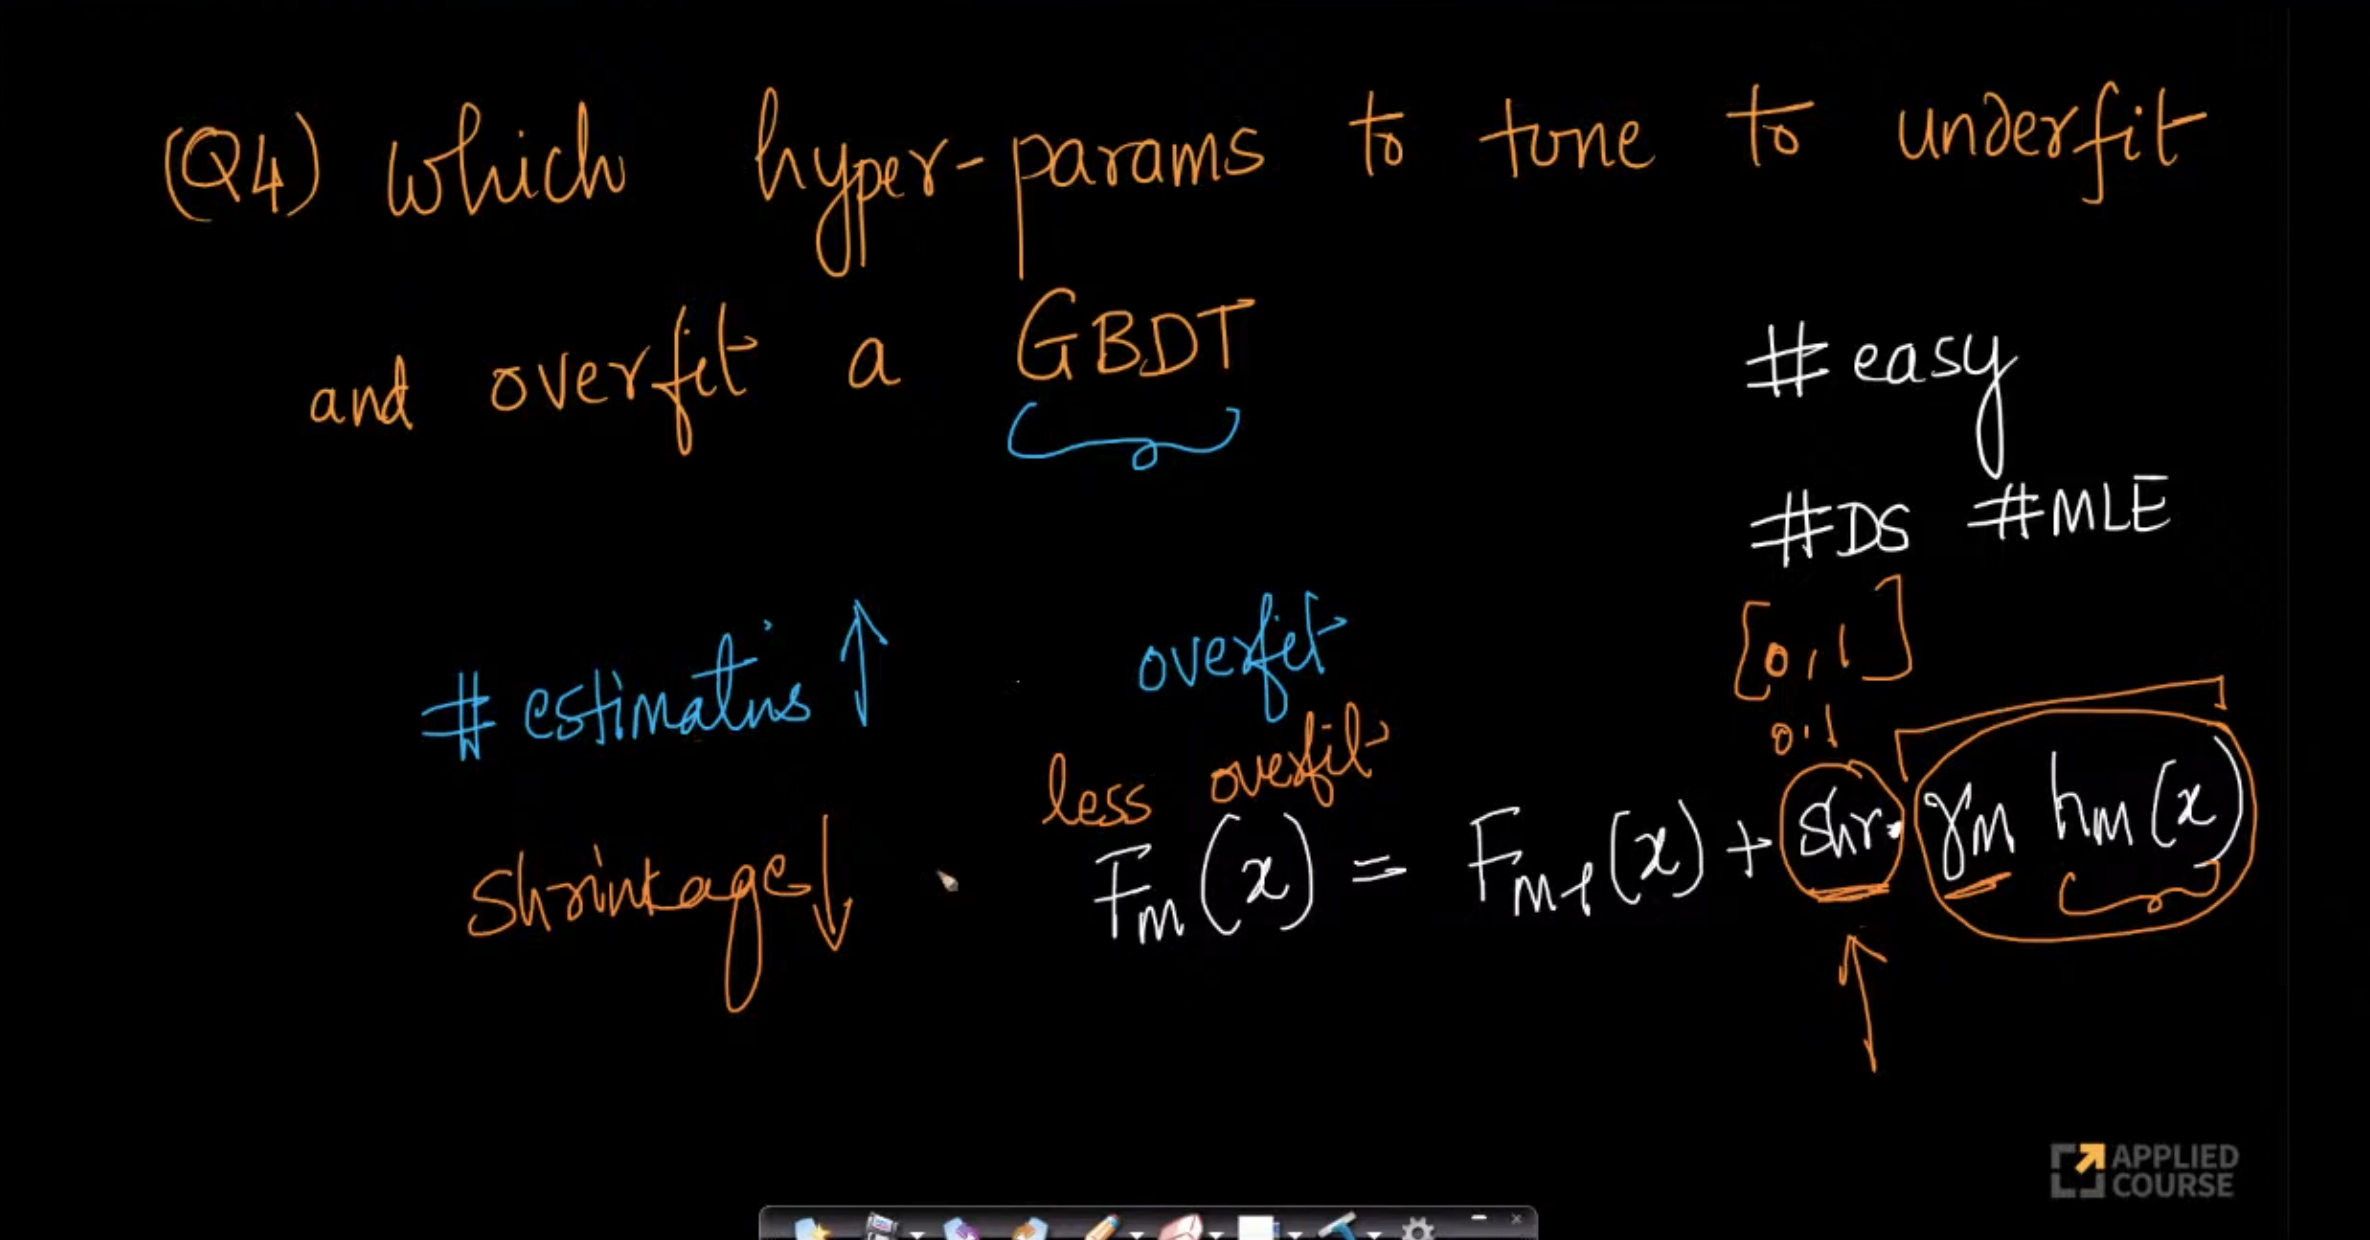 (Q4) which hyper-params to tune to underfit
and overfit a GBDT
#easy
#DS #MLE
[0,1]
0.1
#estimators ↑ overfit
less overfit
shrinkage ↓ Fm(x) = Fm-1(x) + shr. γm hm(x)
APPLIED
COURSE